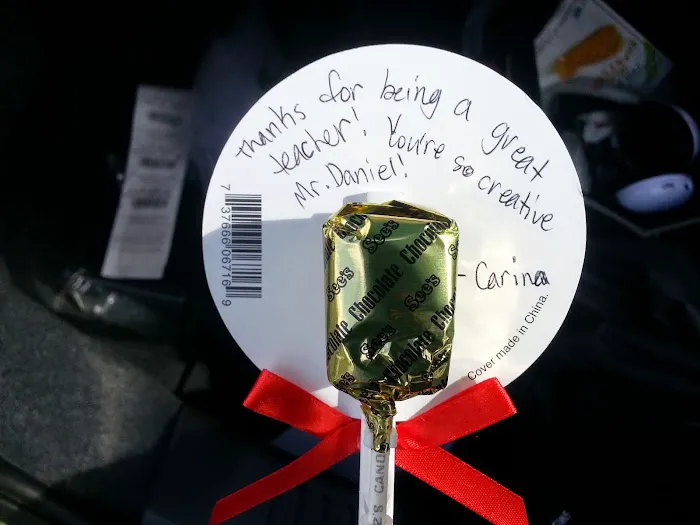 thanks for being a great
teacher! You're so creative
Mr. Daniel!
- Carina
7 37666 06716 9
See's
Chocolate
See's
Chocolate
See's
Chocolate
See's
Cover made in China.
'S CAND